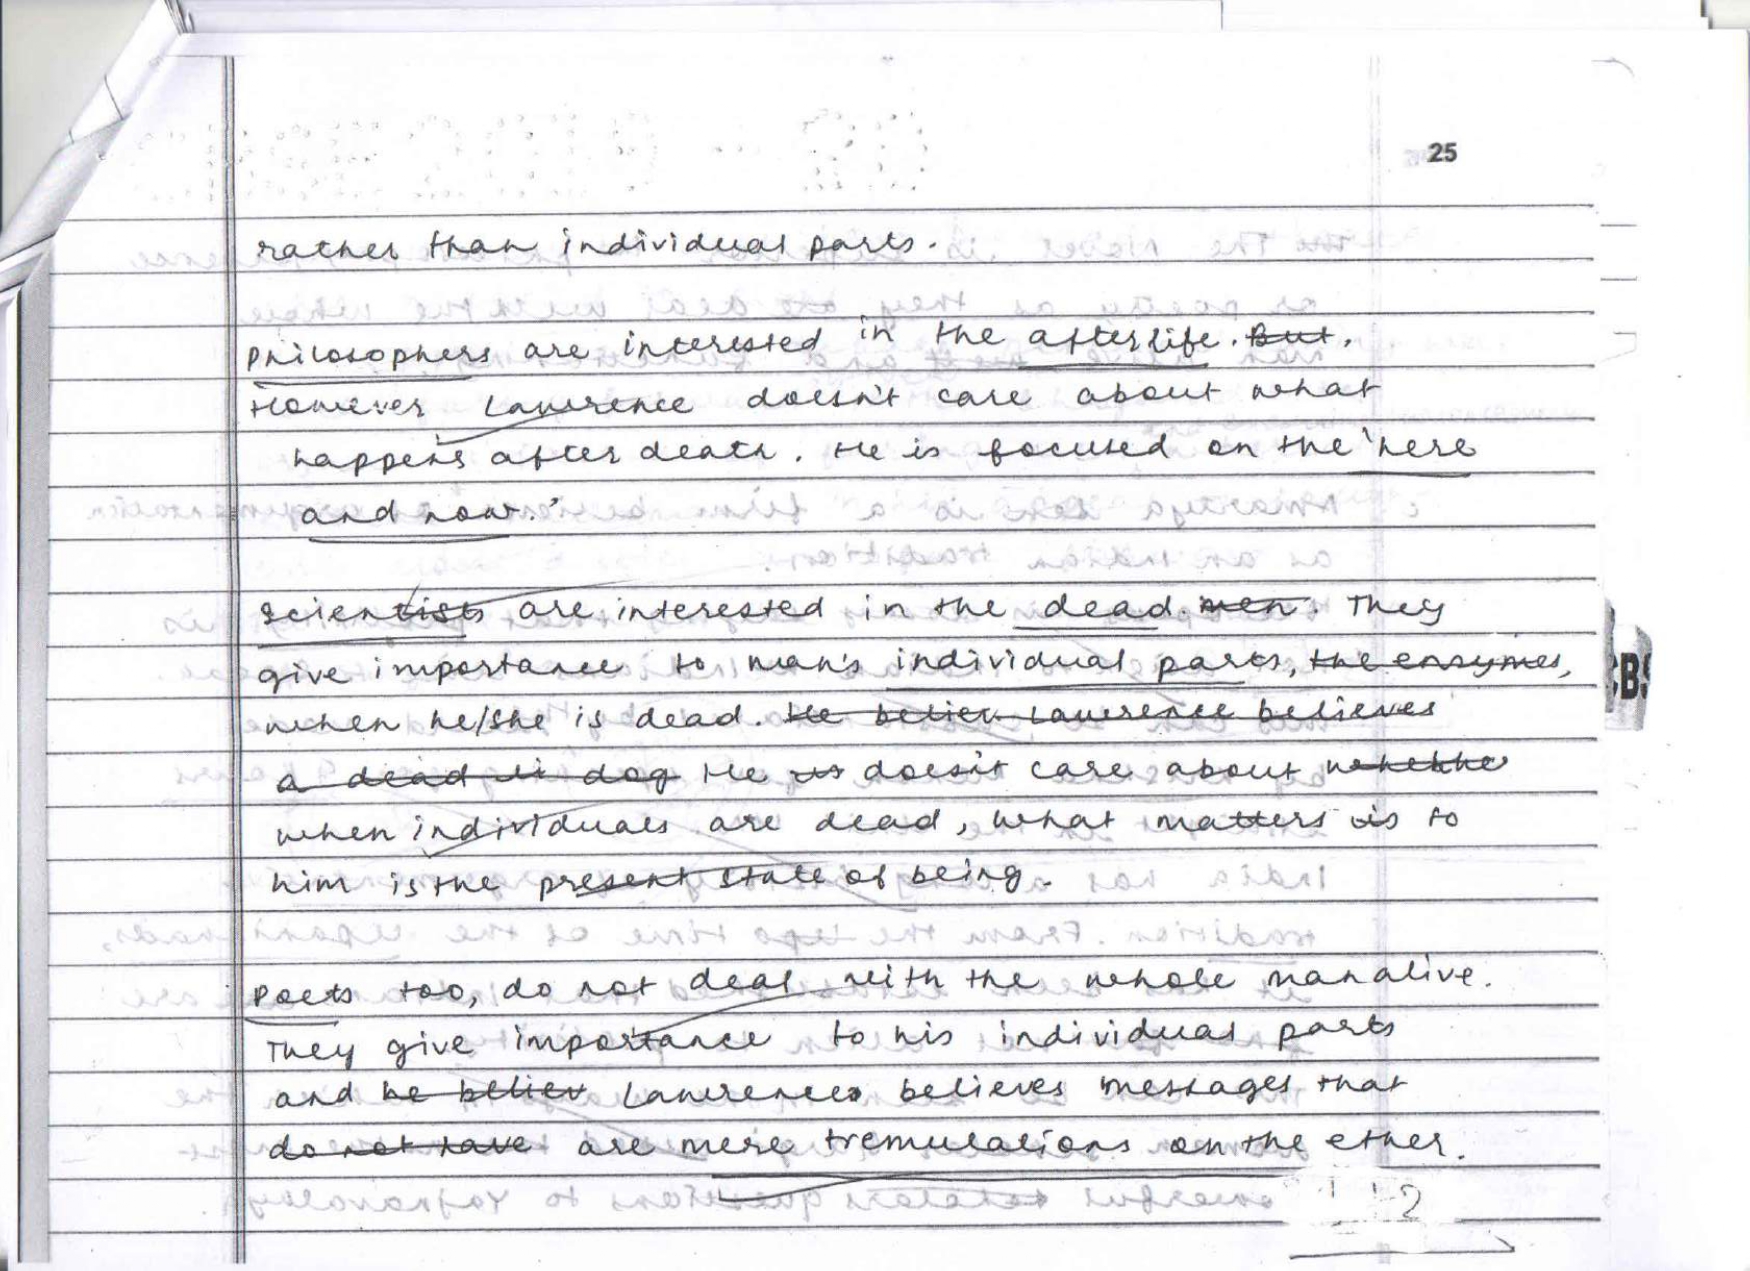 25
rather than individual parts.
Philosophers are interested in the afterlife. But.
However Lawrence doesn't care about what
happens after death. He is focused on the 'here
and now.'
Scientists are interested in the dead men They
give importance to man's individual parts, the enzymes,
when he/she is dead. He believ Lawrence believes
a dead dog He is doesn't care about whethe
when individuals are dead, what matters is to
him is the present state of being.
Poets too, do not deal with the whole man alive.
They give importance to his individual parts
and he believ Lawrence believes messages that
do not have are mere tremulations on the ether.
CBS
2